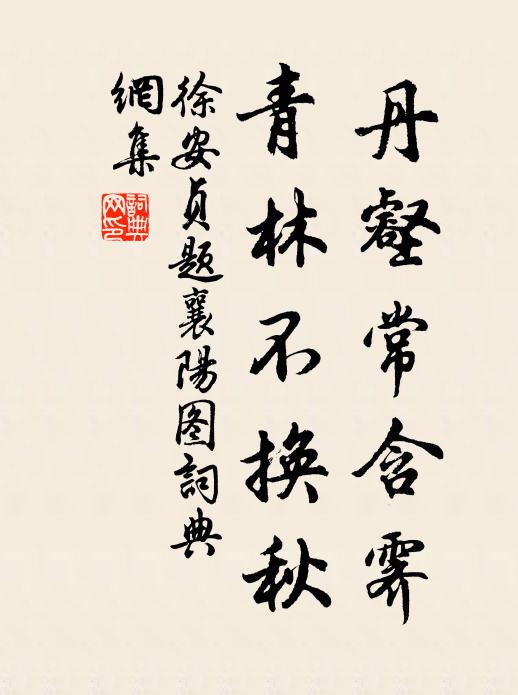 丹壑常含霁
青林不换秋
徐安贞题襄陽图詞典
網集
詞典
网印